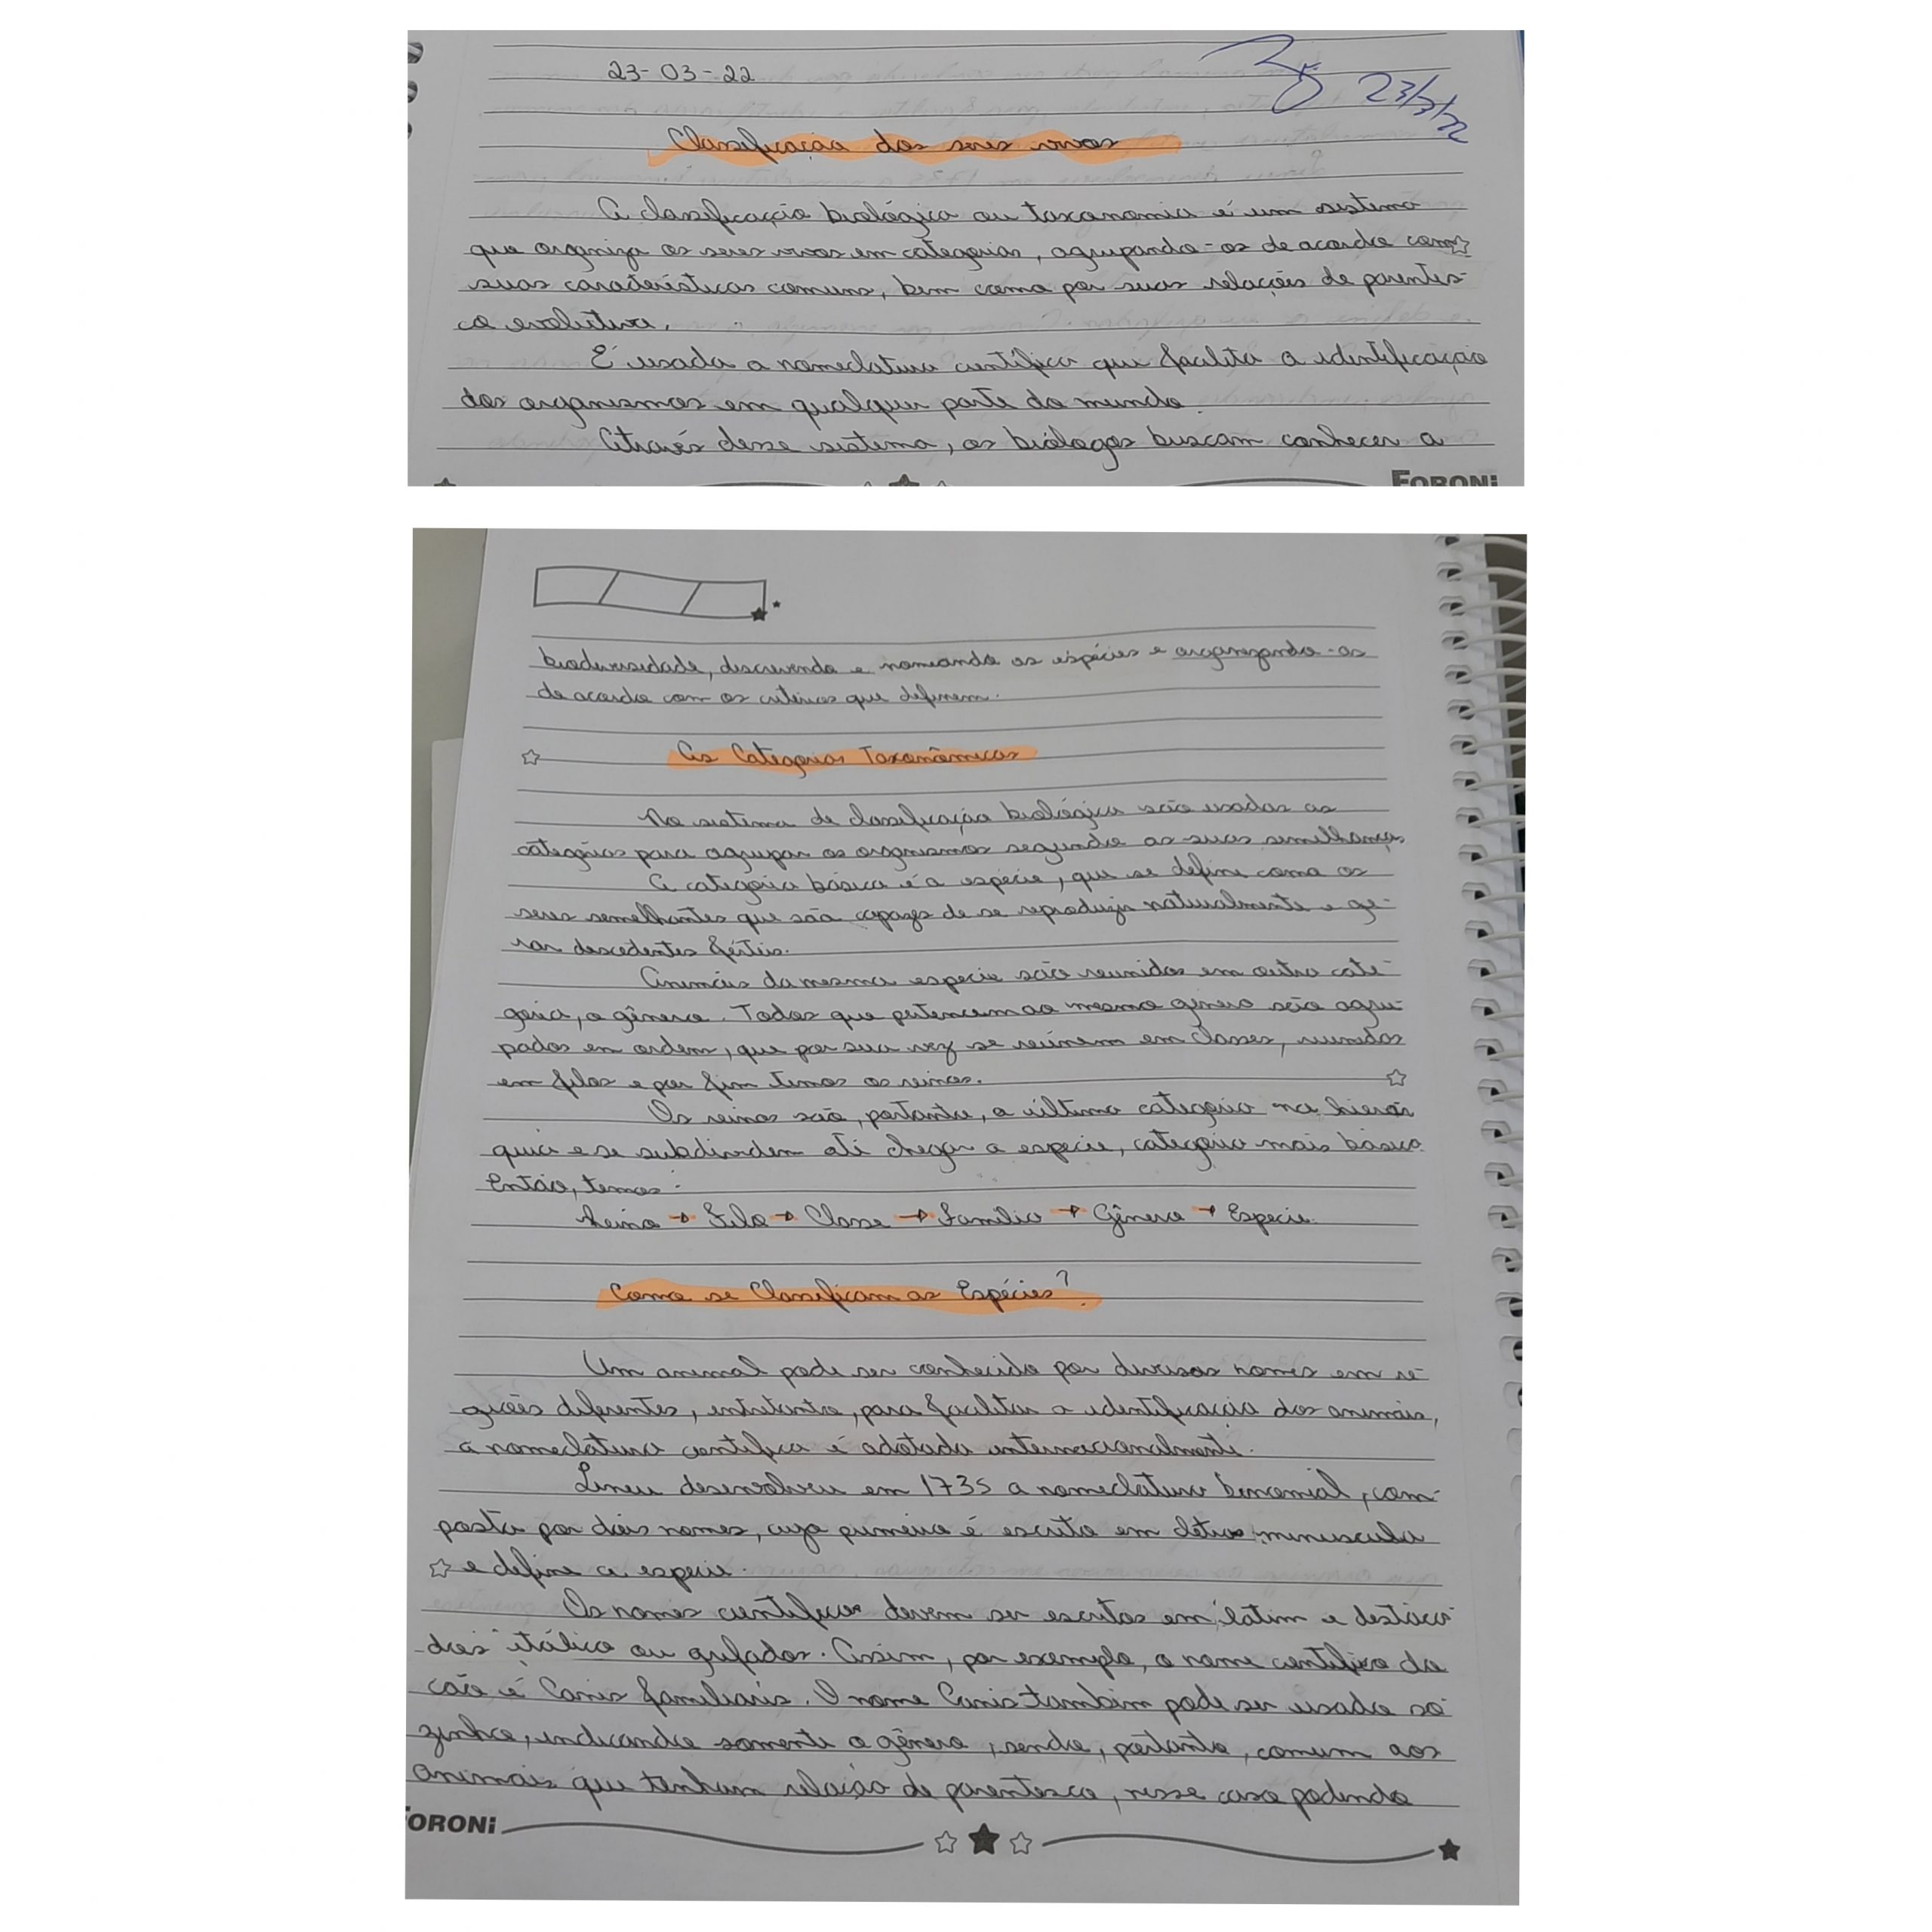 23-03-22
23/3/22
Classificação dos seres vivos
A classificação biológica ou taxonomia é um sistema
que organiza os seres vivos em categorias, agrupando-os de acordo com
suas características comuns, bem como por suas relações de parentes-
co evolutivo.
É usada a nomeclatura científica que facilita a identificação
dos organismos em qualquer parte do mundo.
Através desse sistema, os biólogos buscam conhecer a
FORONI
biodiversidade, descrevendo e nomeando as espécies e organizando-as
de acordo com os critérios que definem.
As Categorias Taxonômicas
No sistema de classificação biológica são usadas as
categorias para agrupar os organismos segundo as suas semelhanças.
A categoria básica é a espécie, que se define como os
seres semelhantes que são capazes de se reproduzir naturalmente e ge-
rar descedentes férteis.
Animais da mesma especie são reunidos em outra cate-
goria, o gênero. Todos que pertencem ao mesmo gênero são agru-
pados em ordem, que por sua vez se reúnem em classes, reunidos
em filos e por fim temos os reinos.
Os reinos são, portanto, a última categoria na hierar
quia e se subdividem até chegar a espécie, categoria mais básica.
Então, temos:
Reino → Filo → Classe → Família → Gênero → Espécie.
Como se Classificam as Espécies?
Um animal pode ser conhecido por diversos nomes em re-
giões diferentes, entretanto, para facilitar a identificação dos animais,
a nomeclatura científica é adotada internacionalmente.
Lineu desenvolveu em 1735 a nomeclatura binomial, com-
posta por dois nomes, cujo primeiro é escrito em letra minuscula
e define a espécie.
Os nomes científicos devem ser escritos em latim e destaca-
dos itálico ou grifados. Assim, por exemplo, o nome científico do
cão é Canis familiaris. O nome Canis também pode ser usado so-
zinho, indicando somente o gênero, sendo, portanto, comum aos
animais que tenham relação de parentesco, nesse caso podendo
FORONI